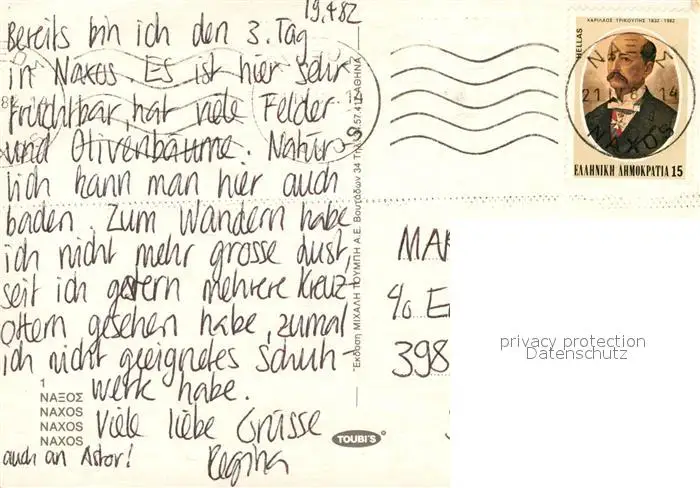 19.4.82
Bereits bin ich den 3. Tag
in Naxos. Es ist hier sehr
fruchtbar, hat viele Felder
und Olivenbäume. Natür-
lich kann man hier auch
baden. Zum Wandern habe
ich nicht mehr grosse Lust,
seit ich gestern mehrere Kreuz-
ottern gesehen habe, zumal
ich nicht geeignetes Schuh-
werk habe.
Viele liebe Grüsse
auch an Astor! Regina
1
ΝΑΞΟΣ
NAXOS
NAXOS
NAXOS
Έκδοση ΜΙΧΑΛΗ ΤΟΥΜΠΗ Α.Ε. Βουτάδων 34 Τηλ. 57.412 ΑΘΗΝΑ
TOUBI'S
ΧΑΡΙΛΑΟΣ ΤΡΙΚΟΥΠΗΣ 1832-1982
HELLAS
ΕΛΛΗΝΙΚΗ ΔΗΜΟΚΡΑΤΙΑ 15
ΝΑΞΟΣ
21 IV 8 14
NAXOS
c/o
398
privacy protection
Datenschutz